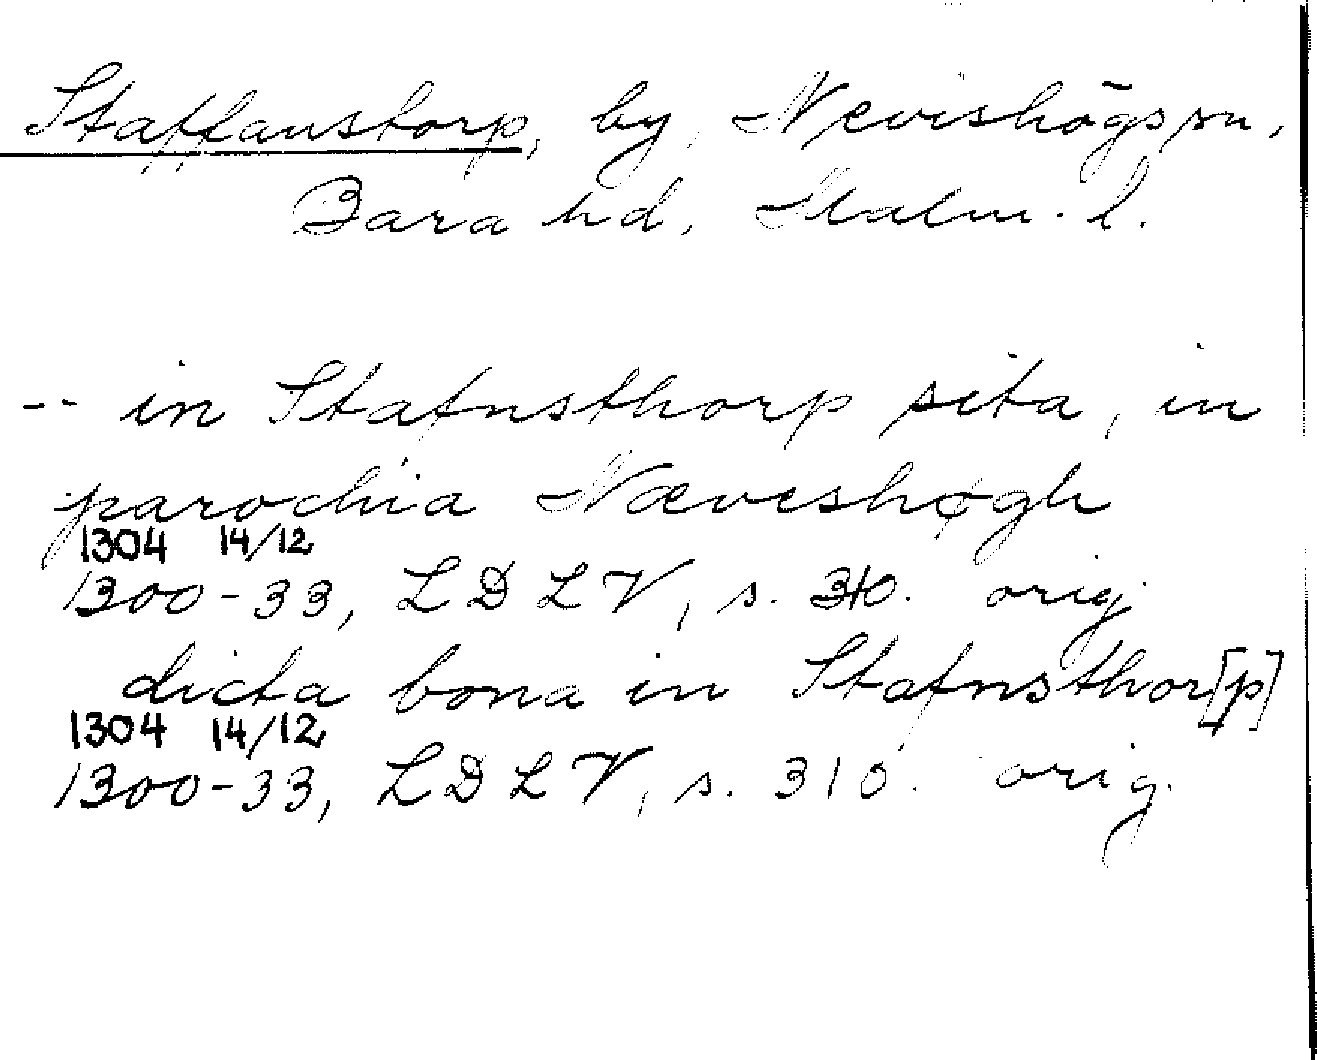 Staffanstorp, by, Nevishögs sn,
Bara hd, Malm. l.
-- in Stafnsthorp sita, in
parochia Næveshøgh
1304 14/12
1300-33, LDLV, s. 310. orig.
dicta bona in Stafnsthor[p]
1304 14/12
1300-33, LDLV, s. 310. orig.